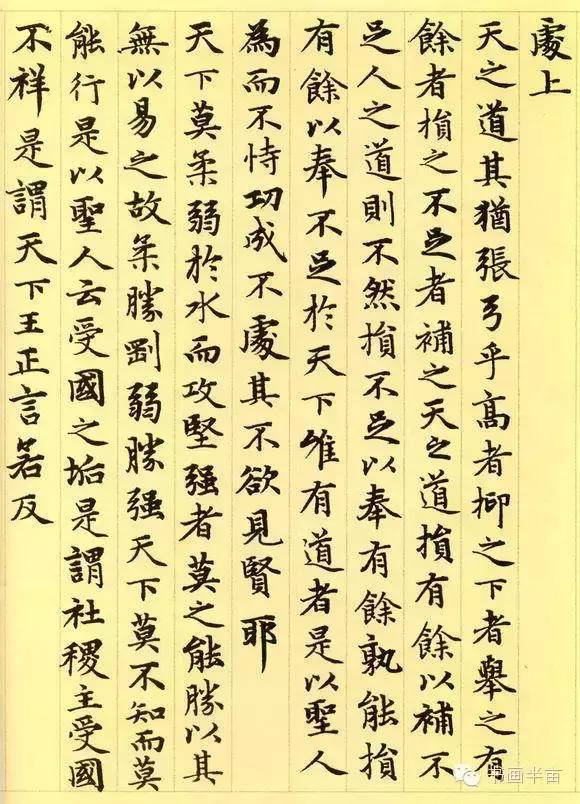 處上
天之道其猶張弓乎高者抑之下者舉之有
餘者損之不足者補之天之道損有餘以補不
足人之道則不然損不足以奉有餘孰能損
有餘以奉不足於天下唯有道者是以聖人
為而不恃功成不處其不欲見賢耶
天下莫柔弱於水而攻堅強者莫之能勝以其
無以易之故柔勝剛弱勝强天下莫不知而莫
能行是以聖人云受國之垢是謂社稷主受國
不祥是謂天下王正言若反
书画半亩